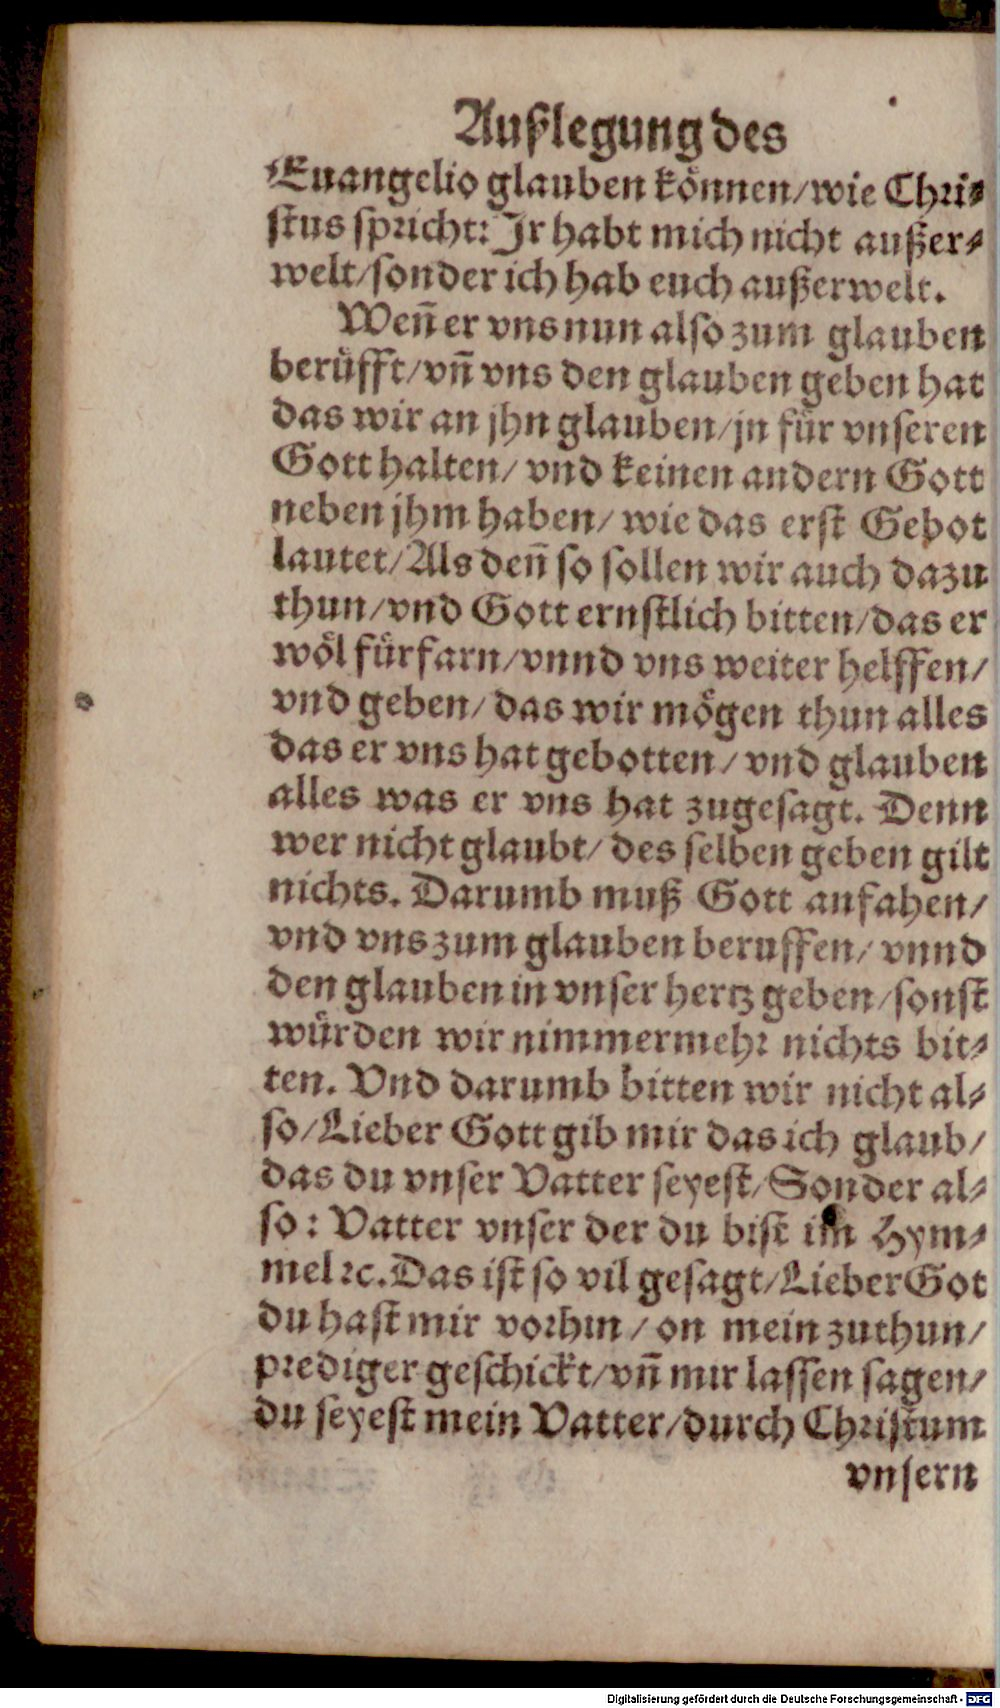 Außlegung des
Euangelio glauben können/wie Chri⸗
stus spricht: Jr habt mich nicht außer⸗
welt/sonder ich hab euch außerwelt.
Weñ er vns nun also zum glauben
berůfft/vñ vns den glauben geben hat
das wir an jhn glauben/jn für vnseren
Gott halten/ vnd keinen andern Gott
neben jhm haben/ wie das erst Gebot
lautet/Als deñ so sollen wir auch dazu
thun/vnd Gott ernstlich bitten/das er
wöl fürfarn/vnnd vns weiter helffen/
vnd geben/das wir mögen thun alles
das er vns hat gebotten/ vnd glauben
alles was er vns hat zugesagt. Denn
wer nicht glaubt/ des selben geben gilt
nichts. Darumb muß Gott anfahen/
vnd vns zum glauben beruffen/ vnnd
den glauben in vnser hertz geben/sonst
würden wir nimmermehr nichts bit⸗
ten. Vnd darumb bitten wir nicht al⸗
so/Lieber Gott gib mir das ich glaub/
das du vnser Vatter seyest/Sonder al⸗
so: Vatter vnser der du bist im Hym⸗
mel ꝛc. Das ist so vil gesagt/Lieber Got
du hast mir vorhin/ on mein zuthun/
prediger geschickt/vñ mir lassen sagen/
du seyest mein Vatter/durch Christum
vnsern
Digitalisierung gefördert durch die Deutsche Forschungsgemeinschaft - DFG